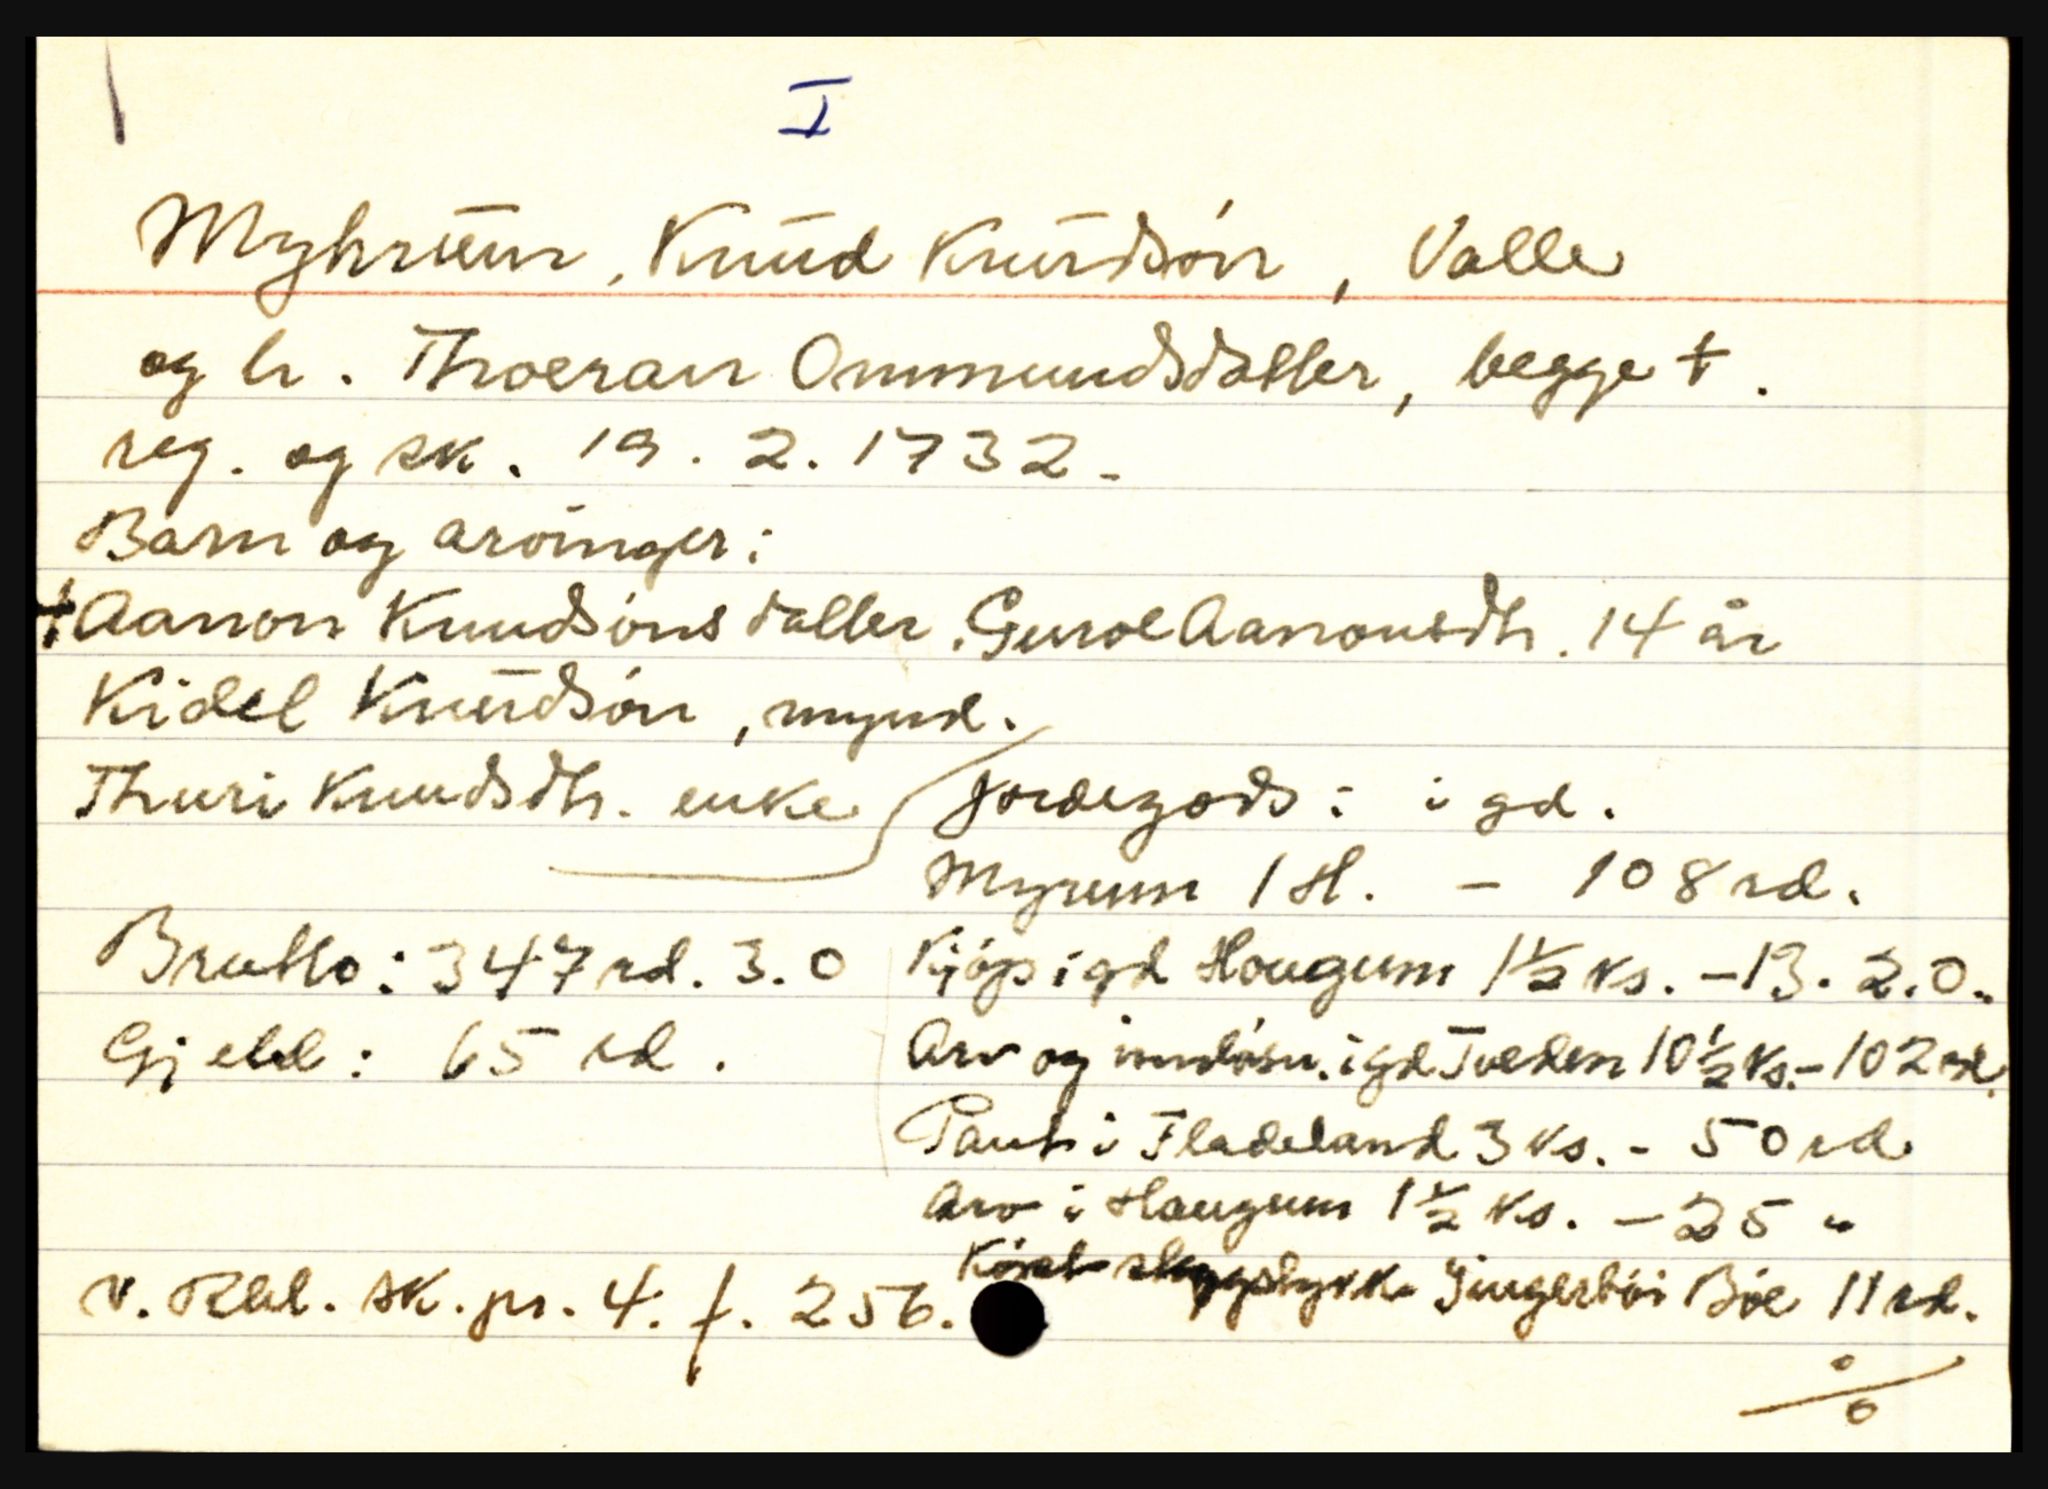 I
Myhrum, Knud Knudsön, Valle
og h. Thoeran Ommundsdatter, begge †.
reg. og sk. 19. 2. 1732.
Barn og arvinger:
† Aanon Knudsöns datter Guroe Aanonsdtr. 14 år
Kidel Knudsön, mynd.
Thuri Knudsdtr. enke
Jordegods: i gd.
Myrum 1 H. - 108 rd.
Kjöp i gd Hougum 1½ ks. - 13. 2. 0.
Arv og innlösn. i gd Tveden 10½ ks. - 102 rd.
Pant i Fladeland 3 ks. - 50 rd
Arv i Haugum 1½ ks. - 25 "
Böe 11 rd.
Brutto: 347 rd. 3. 0
Gjeld: 65 rd.
v. Rbl. sk. pr. 4. f. 256.